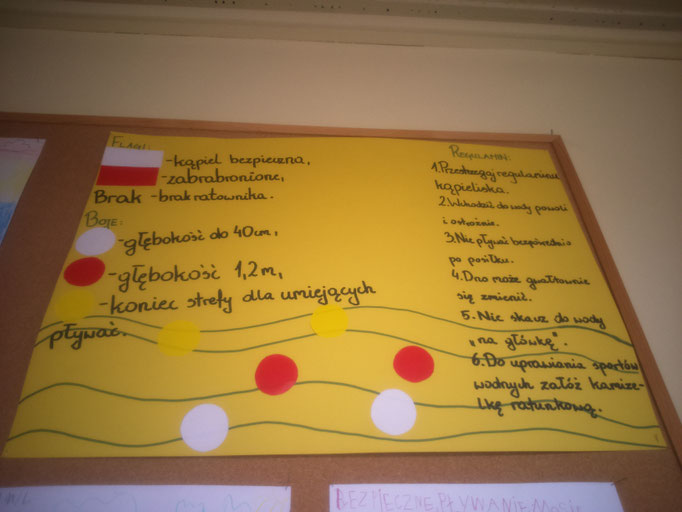 FLAGI:
-kąpiel bezpieczna,
-zabrabronione,
Brak -brak ratownika.
BOJE:
-głębokość do 40cm,
-głębokość 1,2m,
-koniec strefy dla umiejących
pływać.
REGULAMIN:
1.Przestrzegaj regulaminu
kąpieliska.
2.Wchodź do wody powoli
i ostrożnie.
3.Nie pływać bezpośrednio
po posiłku.
4.Dno może gwałtownie
się zmienić.
5.Nie skacz do wody
„na główkę".
6.Do uprawiania sportów
wodnych załóż kamize-
lkę ratunkową.
BEZPIECZNE PŁYWANIE